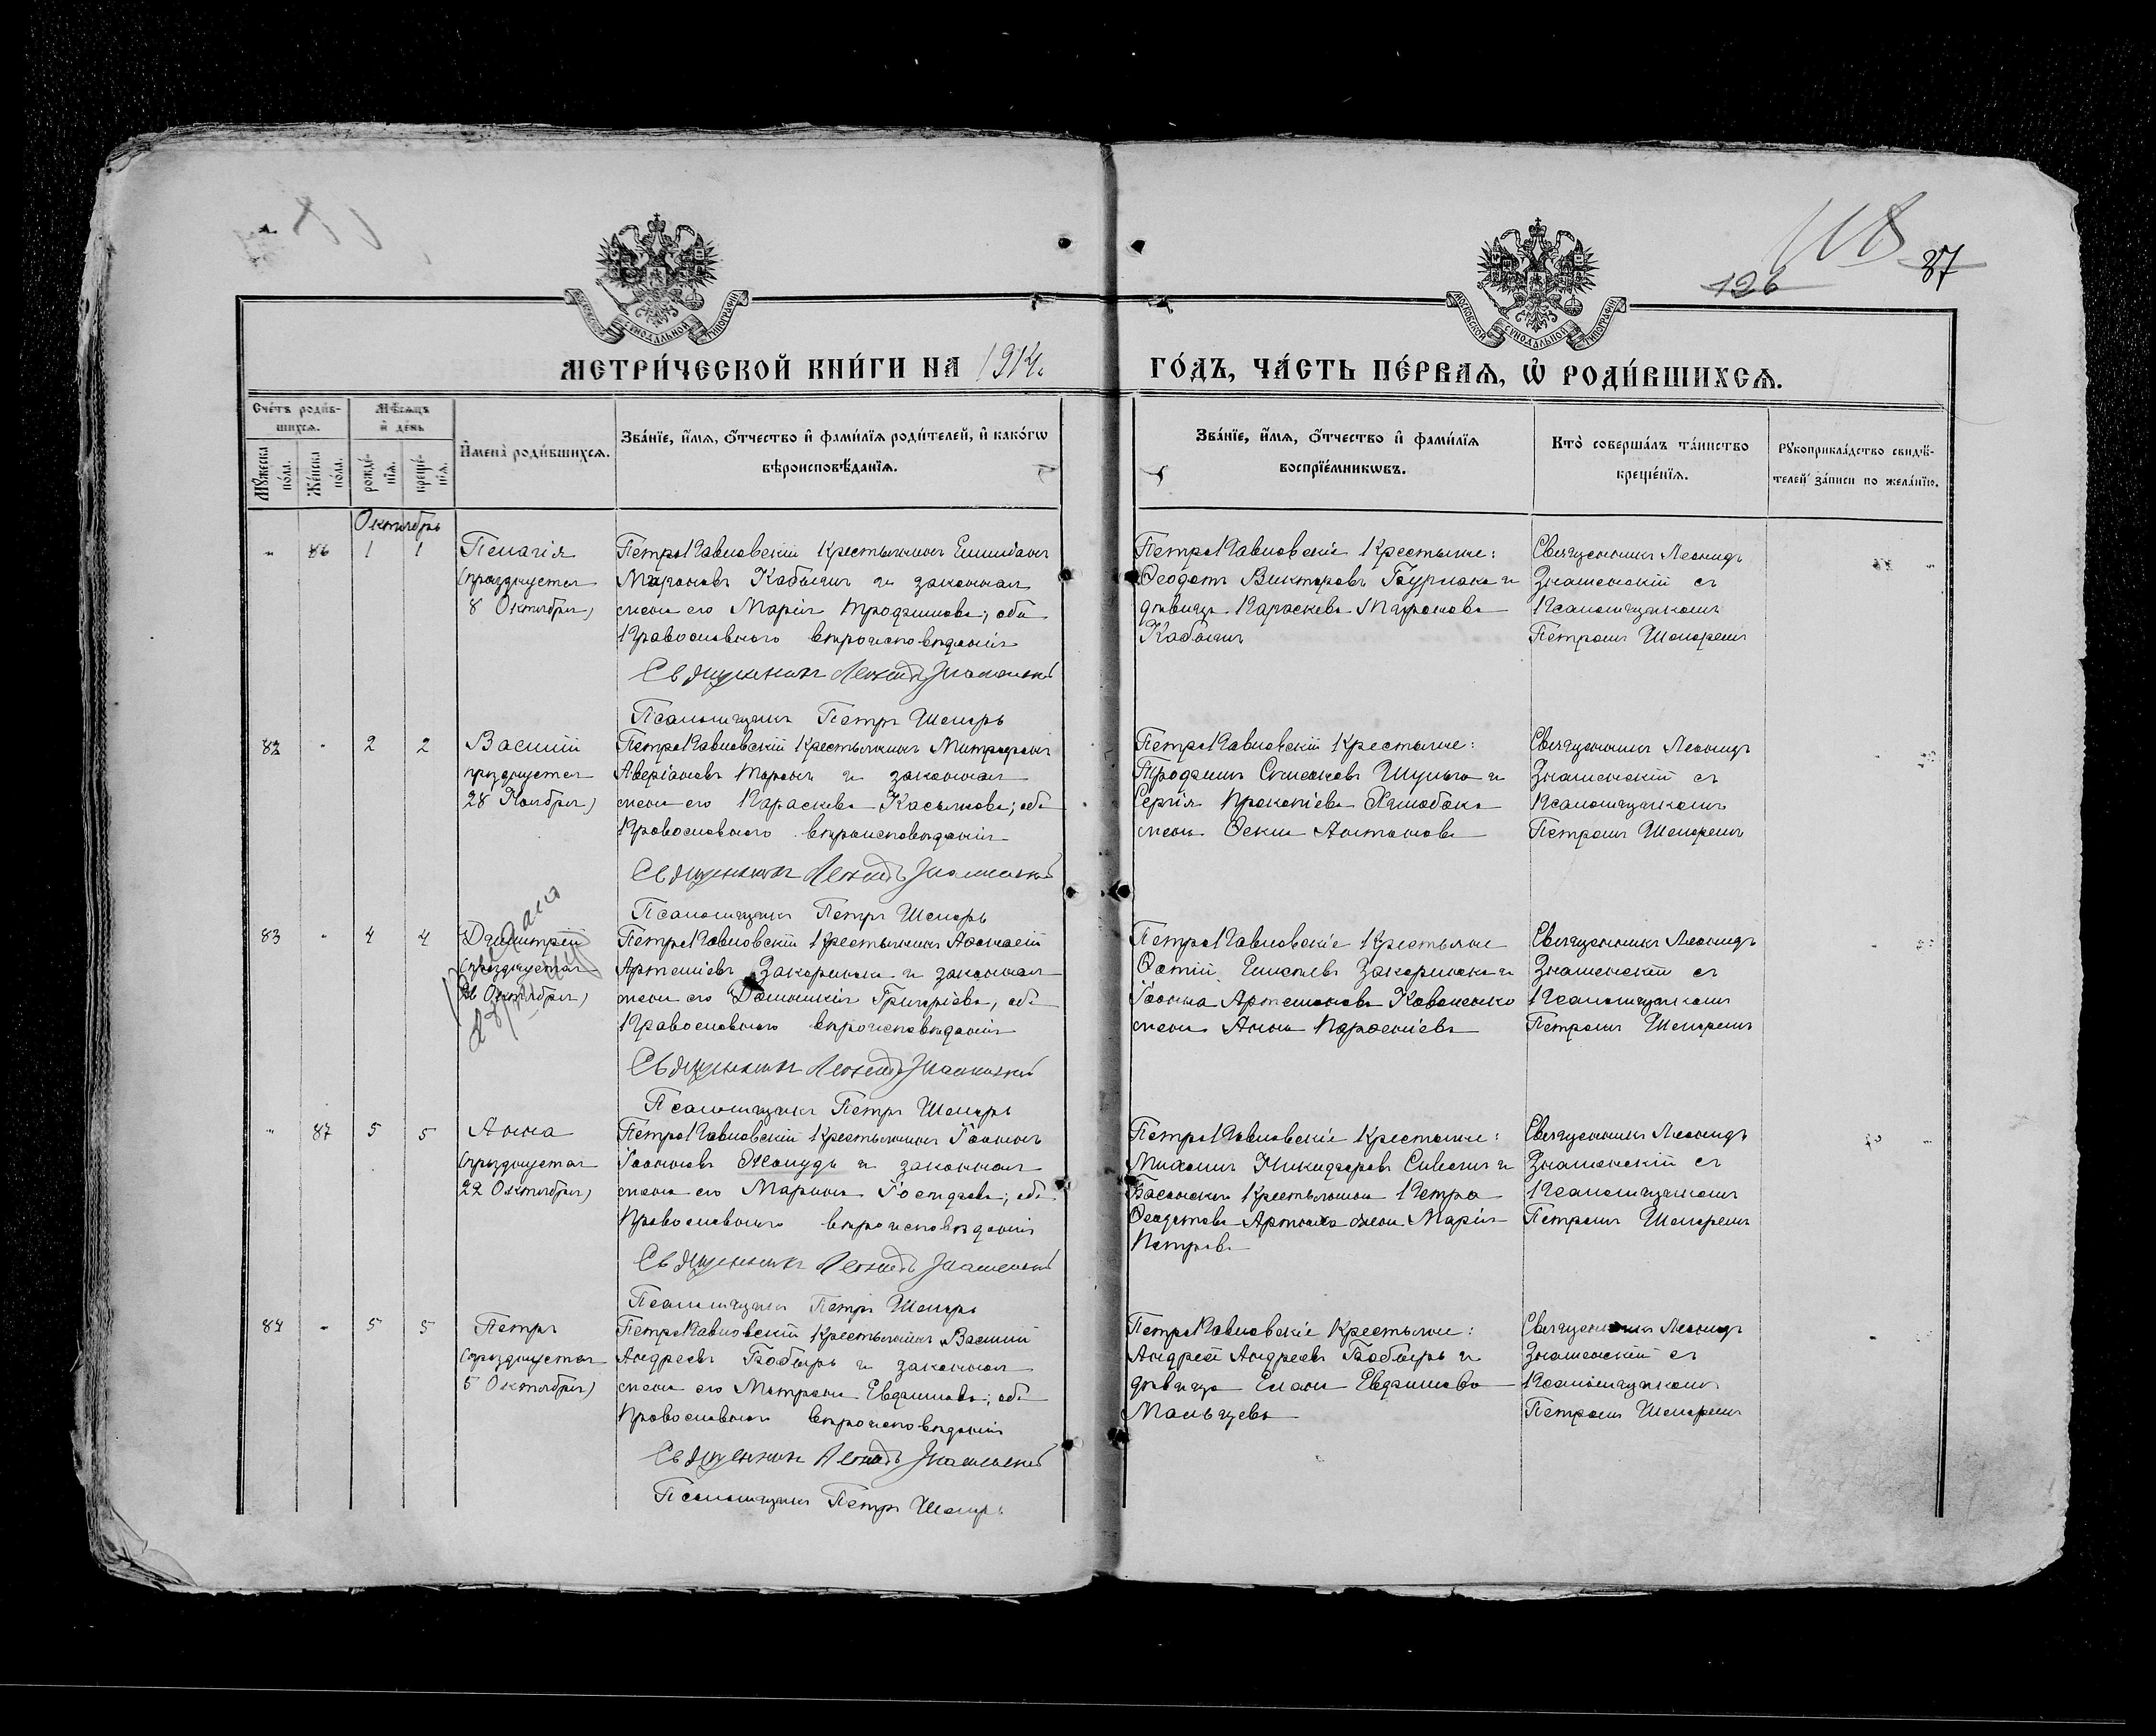 118
126
87
МОСКОВСКОЙ СѴНОДАЛЬНОЙ ТИПОГРАФІИ
МОСКОВСКОЙ СѴНОДАЛЬНОЙ ТИПОГРАФІИ
МЕТРИ́ЧЕСКОЙ КНИ́ГИ НА 1914.
ГО́ДЪ, ЧА́СТЬ ПЕ́РВАЯ, Ѽ РОДИ́ВШИХСЯ.
Сче́тъ роди́в-
шихся.
Мѣ́сяцъ
и҆ де́нь
Мꙋ́жеска по́ла.
Же́нска по́ла.
рожде́-
нїѧ.
креще́-
нїѧ.
И҆мена̀ роди́вшихся.
Зва́нїе, и҆́мя, ѻ҆́тчество и҆ фами́лїя роди́телей, и҆ како́гѡ
вѣроисповѣ́данїя.
Зва́нїе, и҆́мя, ѻ҆́тчество и҆ фами́лїя
воспрїе́мникѡвъ.
Кто̀ соверша́лъ та́инство
креще́нїя.
Рꙋкоприкла́дство свидѣ́-
телей за́писи по жела́нїю.
Октябрь
" 86 1 1 Пелагія
(празднуется
8 Октября)
Петропавловскій крестьянинъ Емиліанъ
Мироновъ Кабычъ и законная
жена его Марія Трофимова; оба
Православнаго вѣроисповѣданія
Священникъ Леонидъ Знаменскій
Псаломщикъ Петръ Шепарь
Петропавловскіе крестьяне:
Ѳеодотъ Викторовъ Бурлака и
дѣвица Параскева Миронова
Кабычъ
Священникъ Леонидъ
Знаменскій съ
Псаломщикомъ
Петромъ Шепаремъ
82 " 2 2 Василій
празднуется
28 Ноября)
Петропавловскій крестьянинъ Митрофанъ
Аверіановъ Таранъ и законная
жена его Параскева Касьянова; оба
Православнаго вѣроисповѣданія
Священникъ Леонидъ Знаменскій
Псаломщикъ Петръ Шепарь
Петропавловскій крестьяне:
Трофимъ Шульга и
Сергія Прокопіева
жена Антонова
Священникъ Леонидъ
Знаменскій съ
Псаломщикомъ
Петромъ Шепаремъ
83 " 4 4 Димитрій
(празднуется
26 Октября)
Петропавловскій крестьянинъ Аѳанасій
Артеміевъ и законная
жена его Домникія Григоріева, оба
Православнаго вѣроисповѣданія
Священникъ Леонидъ Знаменскій
Псаломщикъ Петръ Шепарь
Петропавловскіе крестьяне
Іоанна Артемонова Коваленко
жена Анна Парѳеніева
Священникъ Леонидъ
Знаменскій съ
Псаломщикомъ
Петромъ Шепаремъ
" 87 5 5 Анна
(празднуется
22 Октября)
Петропавловскій крестьянинъ Іоаннъ
Іоанновъ и законная
жена его Марина оба
Православнаго вѣроисповѣданія
Священникъ Леонидъ Знаменскій
Псаломщикъ Петръ Шепарь
Петропавловскіе крестьяне:
Михаилъ Никифоровъ и
крестьянина Петра
Ѳеодотова жена Марія
Петрова
Священникъ Леонидъ
Знаменскій съ
Псаломщикомъ
Петромъ Шепаремъ
84 " 5 5 Петръ
(празднуется
5 Октября)
Петропавловскій крестьянинъ Василій
Андреевъ Бобырь и законная
жена его Матрона Евфимова; оба
Православнаго вѣроисповѣданія
Священникъ Леонидъ Знаменскій
Псаломщикъ Петръ Шепарь
Петропавловскіе крестьяне:
Андрей Андреевъ Бобырь и
дѣвица Елена Евфимова
Мальцева
Священникъ Леонидъ
Знаменскій съ
Псаломщикомъ
Петромъ Шепаремъ